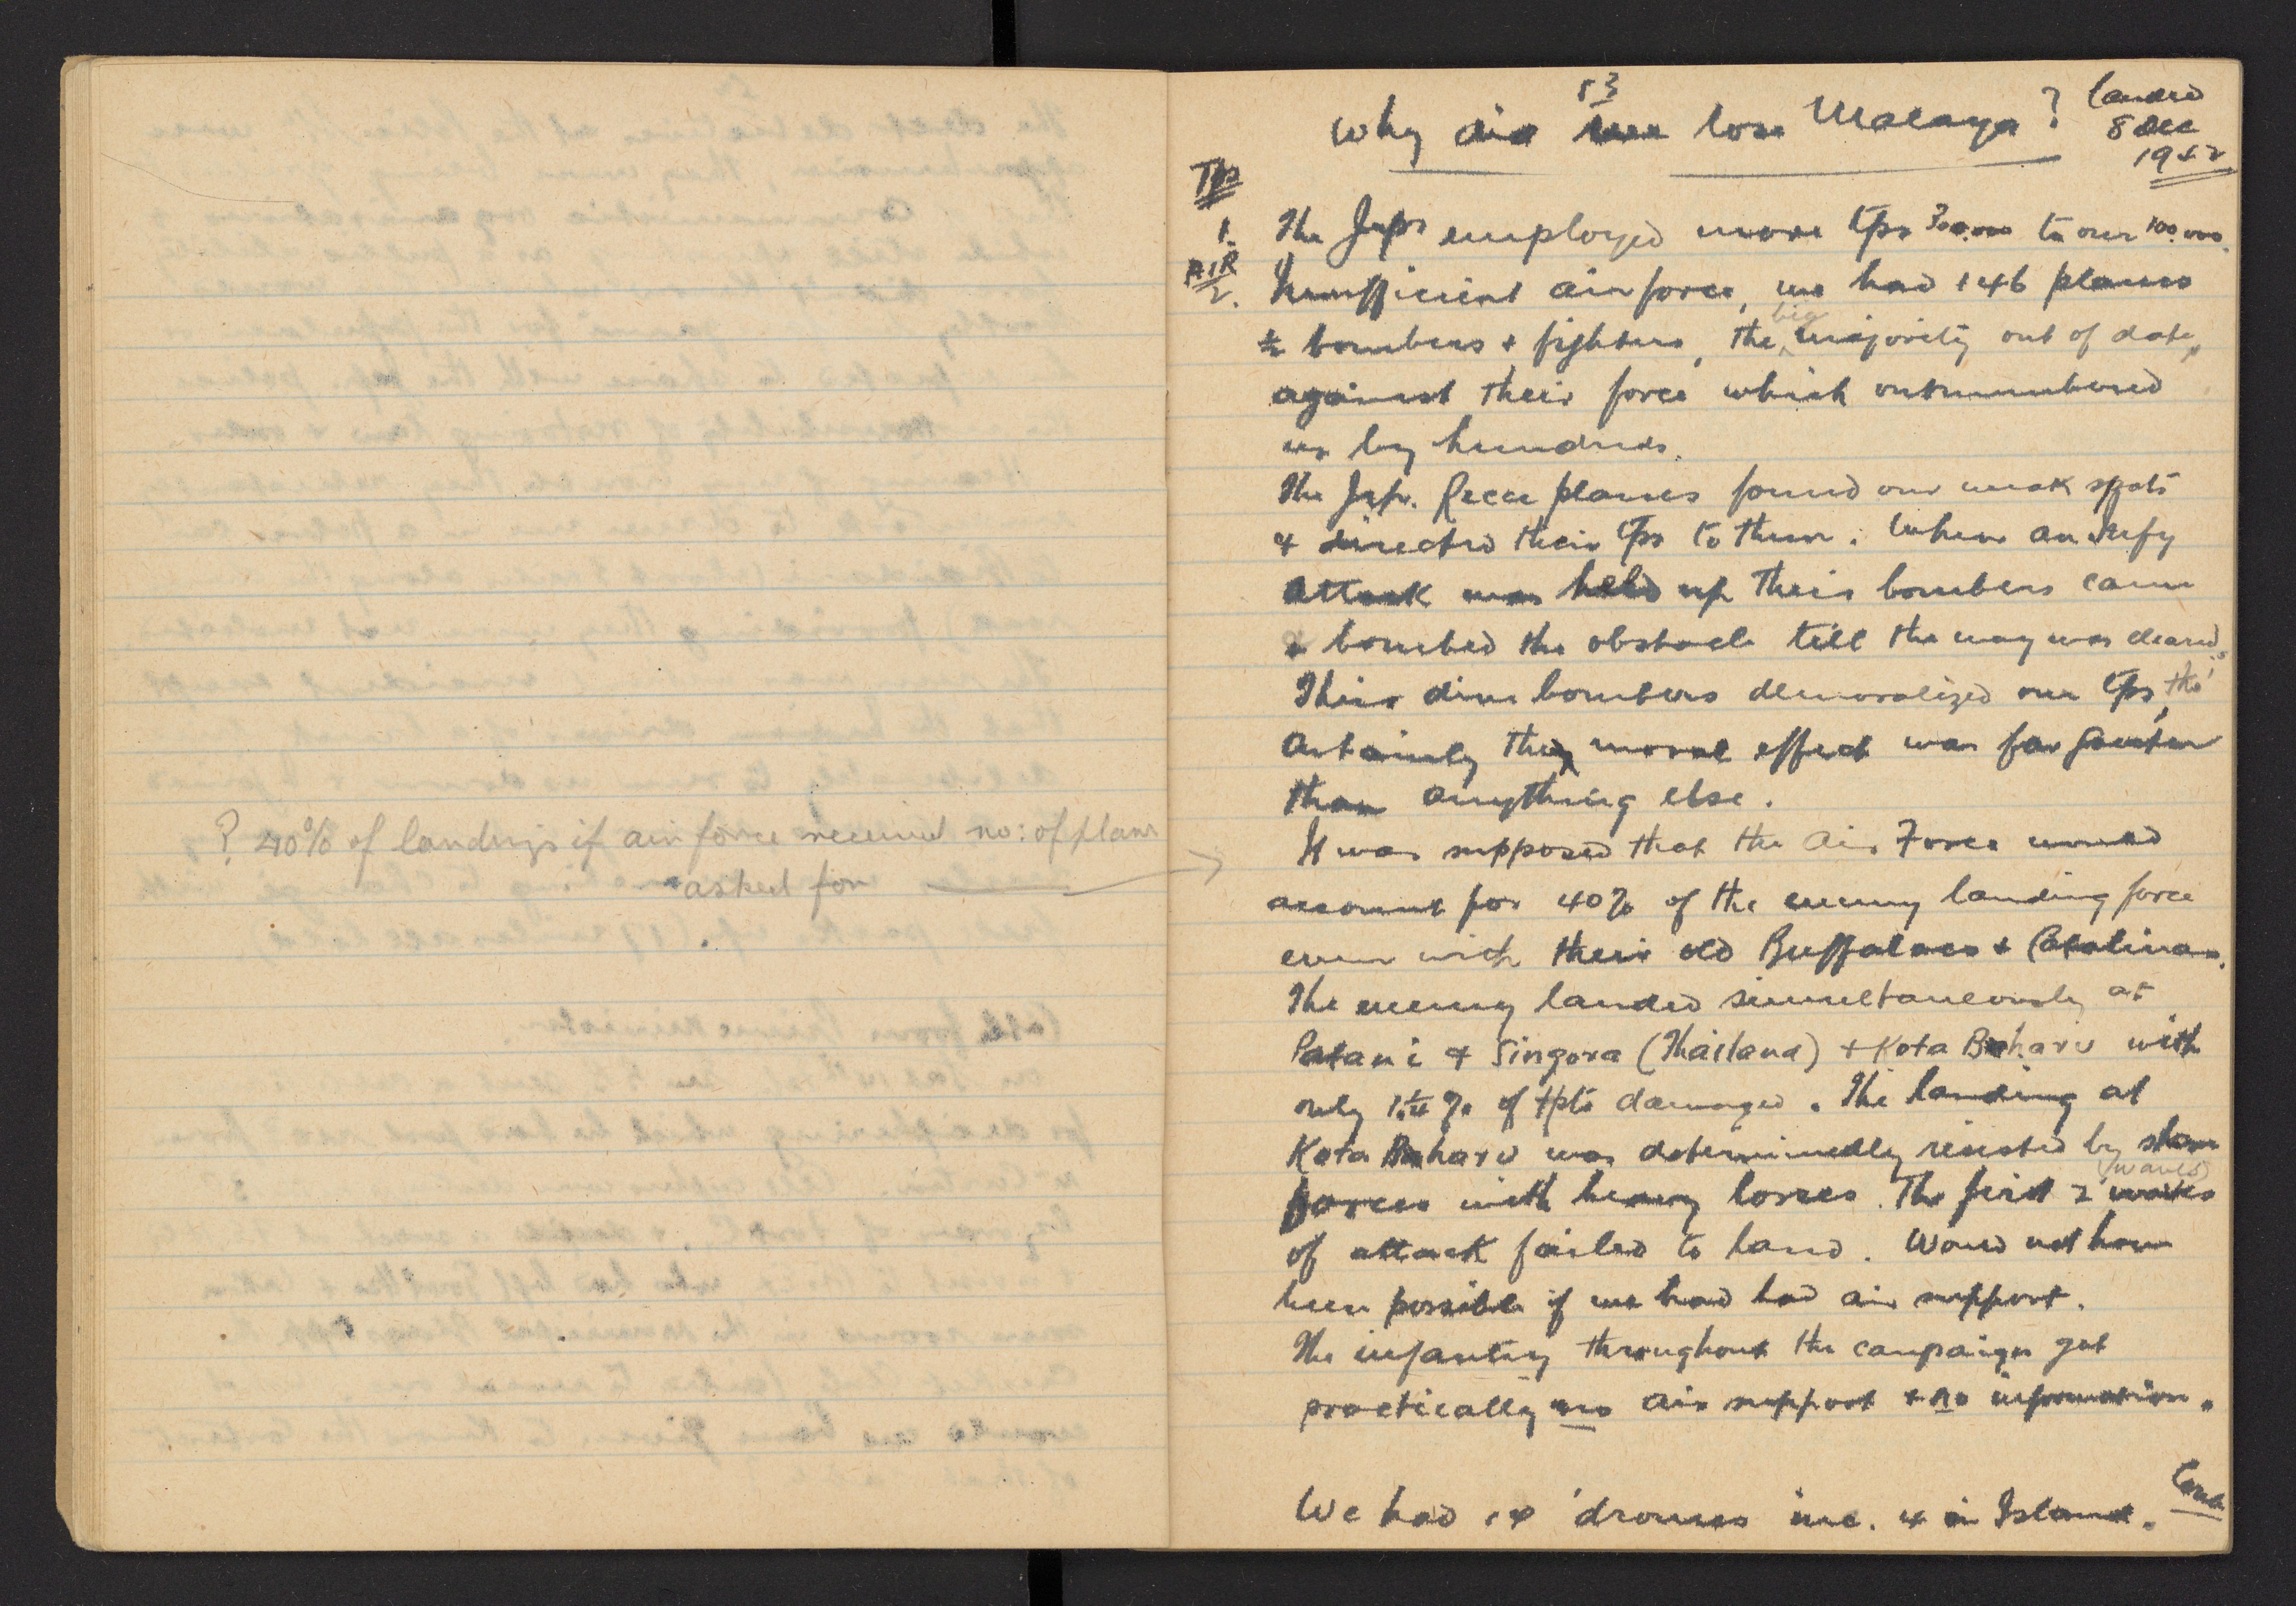 ? 40% of landings if air force received no: of planes
asked for
53
Why did we lose Malaya?
landed
8 Dec
1942
Tps
1. The Japs employed more tps 300.000 to our 100.000.
AIR
2. Insufficient air force, we had 146 planes
bombers + fighters, the big majority out of date,
against their force which outnumbered
us by hundreds.
The Jap. Recce planes found our weak spots
+ directed their tps to them. When an Infy
attack was held up their bombers came
+ bombed the obstacle till the way was cleared.
Their dive bombers demoralized our tps, tho'
certainly the moral effect was far greater
than anything else.
It was supposed that the Air Force would
account for 40% of the enemy landing force
even with their old Buffaloes + Catalinas.
The enemy landed simultaneously at
Patani & Singora (Thailand) + Kota Baharu with
only % of tpts damaged. The landing at
Kota Baharu was determinedly resisted by shore
forces with heavy losses. The first 2 waves (waves)
of attack failed to land. Would not have
been possible if we had had air support.
The infantry throughout the campaign got
practically no air support + no information.
We had 'dromes inc. 4 in Island.